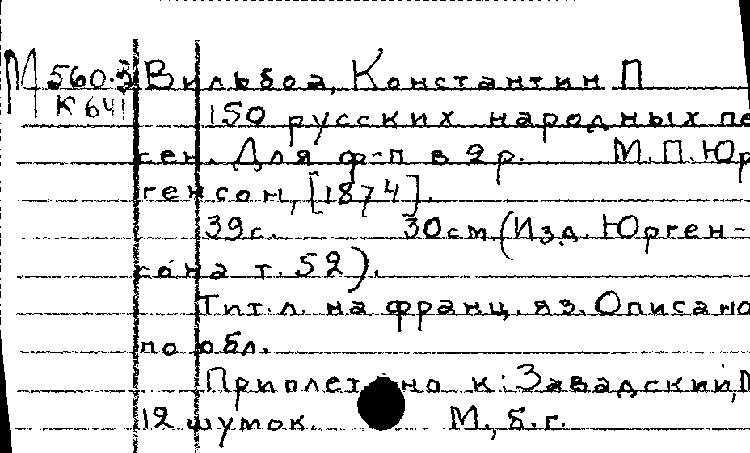 М 560.3 Вильбоа, Константин П
К 641 150 русских народных пе
сен. Для ф-п в 2 р. М. П. Юр
генсон, [1874].
39 с. 30 см (Изд. Юрген-
сона т. 52).
Тит. л. на франц. яз. Описано
по обл.
Приплетено к: Завадский,
12 шумок. М., б. г.